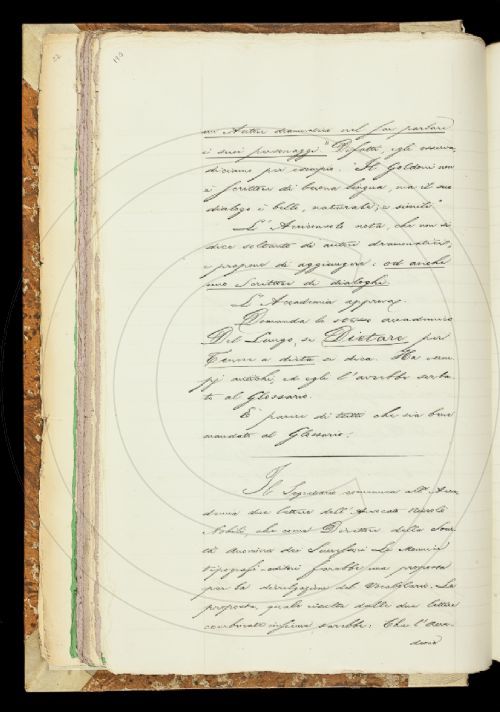 un Autore drammatico nel far parlare
i suoi personaggi" Difatti, egli osserva,
diciamo per esempio. "Il Goldoni non
è scrittore di buona lingua, ma il suo
dialogo è bello, naturale, e simile"
L'Arciconsolo nota, che non si
dice soltanto di autori drammatici,
e propone di aggiungere: od anche
uno Scrittore di dialoghi.
L'Accademia approva.
Domanda lo stesso accademico
Del Lungo, se Dietare per
Tenere a dieta si dica. Ha esem-
pj antichi, ed egli l'avrebbe serba-
to al Glossario.
È parere di tutti che sia ben
mandato al Glossario.
Il Segretario comunica all'Acca-
demia due lettere dell'Avvocato Niccolò
Nobili, che come Direttore della Socie-
tà Anonima dei Successori Le Monnier
tipografi-editori farebbe una proposta
per la divulgazione del Vocabolario. La
proposta, quale risulta dalle due lettere
insieme, sarebbe: Che l'Acca-
demia